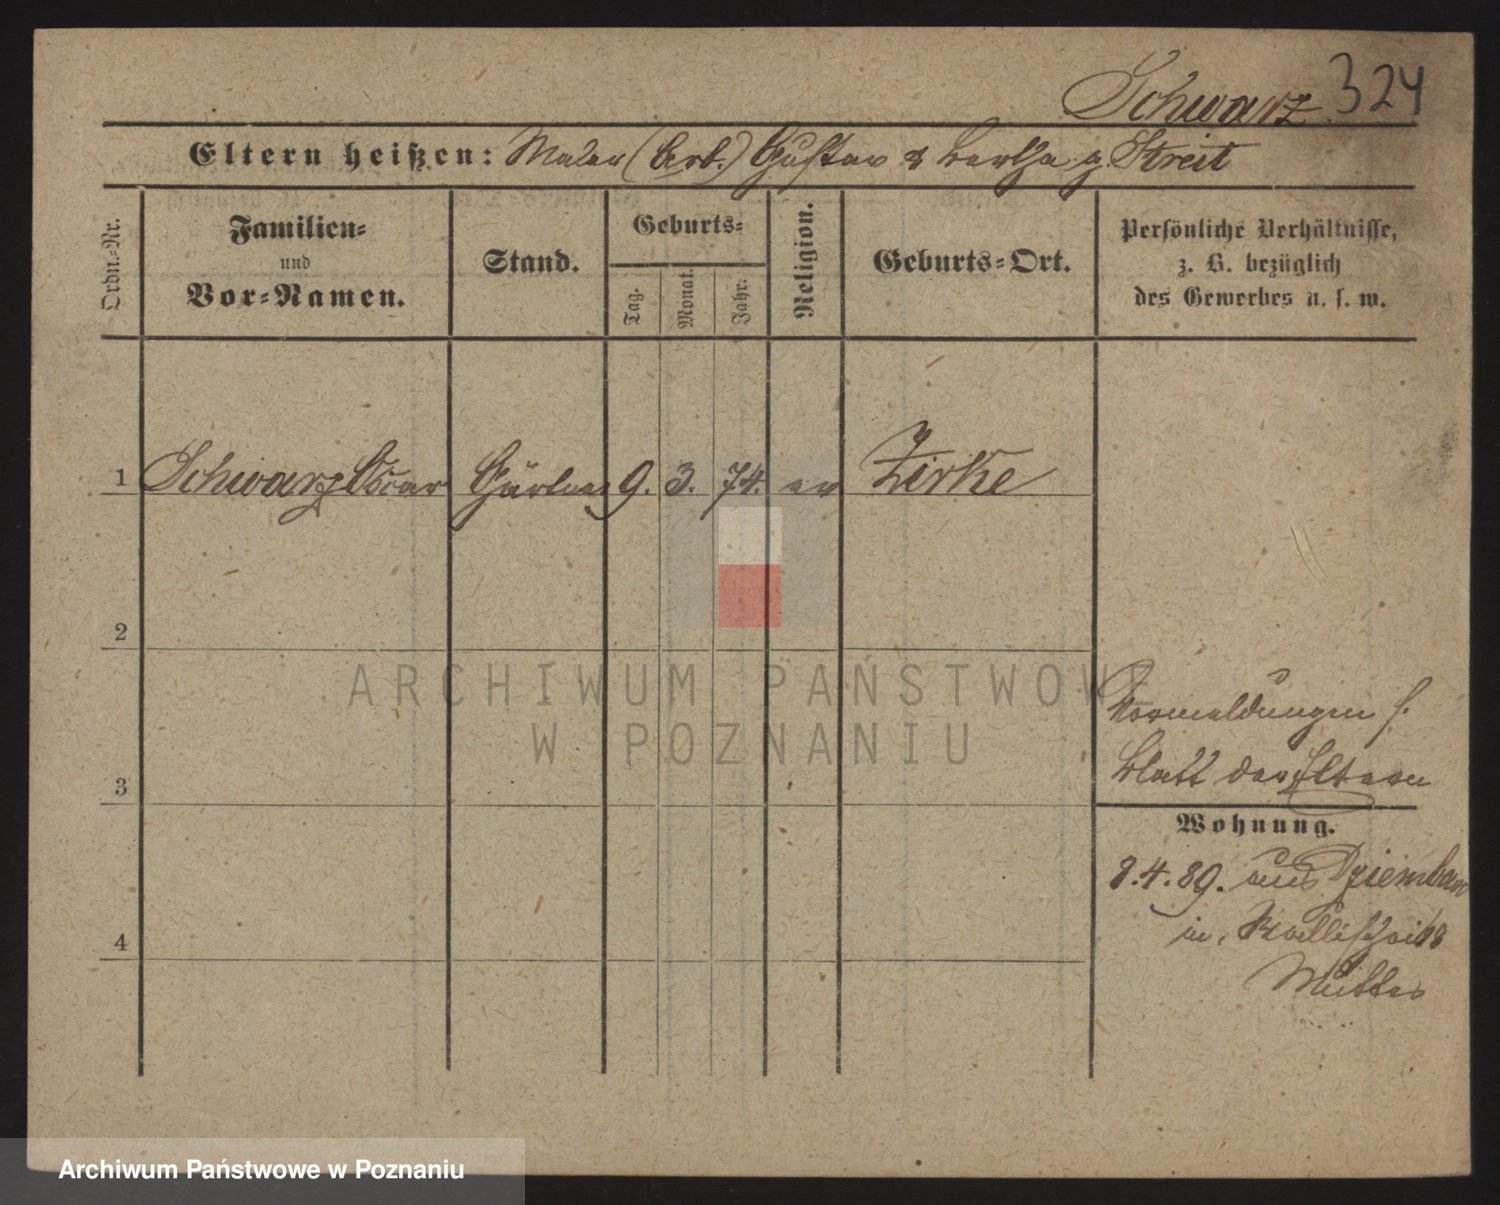 Schwarz 324
Eltern heißen: Maler (Arb.) Gustav & Bertha g. Streit
Ordn.-Nr.
Familien-
und
Vor-Namen.
Stand.
Geburts-
Tag.
Monat.
Jahr.
Religion.
Geburts-Ort.
Persönliche Verhältnisse,
z. B. bezüglich
des Gewerbes u. s. w.
1 Schwarz Oscar Gärtner 9. 3. 74. ev Zirke
2
3
4
Vormeldungen s.
Blatt der Eltern
Wohnung.
8.4.89. aus Dziembowo
in,
Mutter
ARCHIWUM PAŃSTWOWE
W POZNANIU
Archiwum Państwowe w Poznaniu